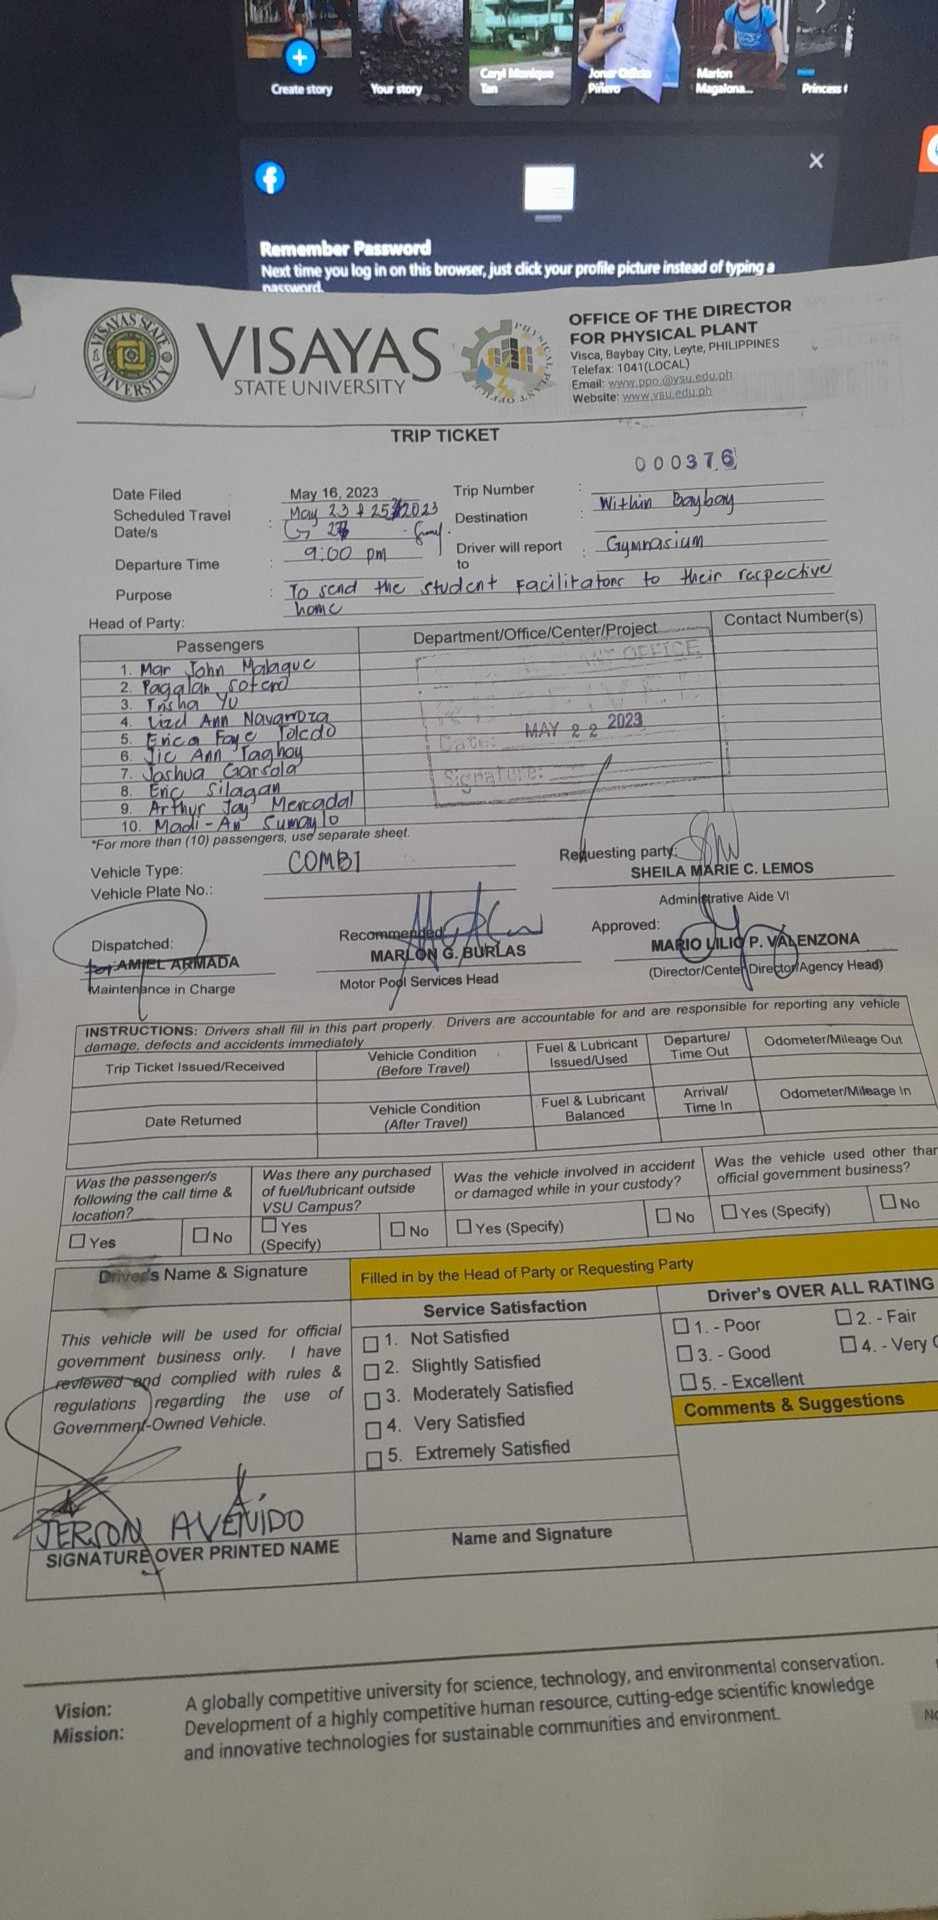 Create story
Your story
Caryl Monique Tan
Jonar Odizio Piñero
Marlon Magalona...
Princess
Remember Password
Next time you log in on this browser, just click your profile picture instead of typing a
password.
VISAYAS STATE UNIVERSITY
VISAYAS
STATE UNIVERSITY
PHYSICAL PLANT OFFICE
OFFICE OF THE DIRECTOR
FOR PHYSICAL PLANT
Visca, Baybay City, Leyte, PHILIPPINES
Telefax: 1041(LOCAL)
Email: www.ppo.@vsu.edu.ph
Website: www.vsu.edu.ph
TRIP TICKET
000376
Date Filed : May 16, 2023
Trip Number :
Scheduled Travel Date/s : May 23 & 25 2023
27
Destination : Within Baybay
Departure Time : 9:00 pm
Driver will report to : Gymnasium
Purpose : To send the student Facilitators to their respective
home
Head of Party:
Passengers Department/Office/Center/Project Contact Number(s)
1. Mar John Malague
2. Pagalan Sotero
3. Trisha Yu
4. Lizel Ann Navarroza
5. Erica Faye Toledo
6. Jic Ann Taghoy
7. Joshua Garsola
8. Eric Silagan
9. Arthur Jay Mercadal
10. Madi-An Sumaylo
OFFICE
Date: MAY 22 2023
Signature:
*For more than (10) passengers, use separate sheet.
Vehicle Type: COMBI
Vehicle Plate No.:
Requesting party:
SHEILA MARIE C. LEMOS
Administrative Aide VI
Dispatched:
for AMIEL ARMADA
Maintenance in Charge
Recommended:
MARLON G. BURLAS
Motor Pool Services Head
Approved:
MARIO LILIO P. VALENZONA
(Director/Center Director/Agency Head)
INSTRUCTIONS: Drivers shall fill in this part properly. Drivers are accountable for and are responsible for reporting any vehicle
damage, defects and accidents immediately
Trip Ticket Issued/Received Vehicle Condition (Before Travel) Fuel & Lubricant Issued/Used Departure/ Time Out Odometer/Mileage Out
Date Returned Vehicle Condition (After Travel) Fuel & Lubricant Balanced Arrival/ Time In Odometer/Mileage In
Was the passenger/s following the call time & location?
Yes No
Was there any purchased of fuel/lubricant outside VSU Campus?
Yes (Specify) No
Was the vehicle involved in accident or damaged while in your custody?
Yes (Specify) No
Was the vehicle used other than official government business?
Yes (Specify) No
Driver's Name & Signature
Filled in by the Head of Party or Requesting Party
This vehicle will be used for official
government business only. I have
reviewed and complied with rules &
regulations regarding the use of
Government-Owned Vehicle.
Service Satisfaction
1. Not Satisfied
2. Slightly Satisfied
3. Moderately Satisfied
4. Very Satisfied
5. Extremely Satisfied
Driver's OVER ALL RATING
1. - Poor
2. - Fair
3. - Good
4. - Very
5. - Excellent
Comments & Suggestions
JERSON AVENIDO
SIGNATURE OVER PRINTED NAME
Name and Signature
Vision: A globally competitive university for science, technology, and environmental conservation.
Mission: Development of a highly competitive human resource, cutting-edge scientific knowledge
and innovative technologies for sustainable communities and environment.